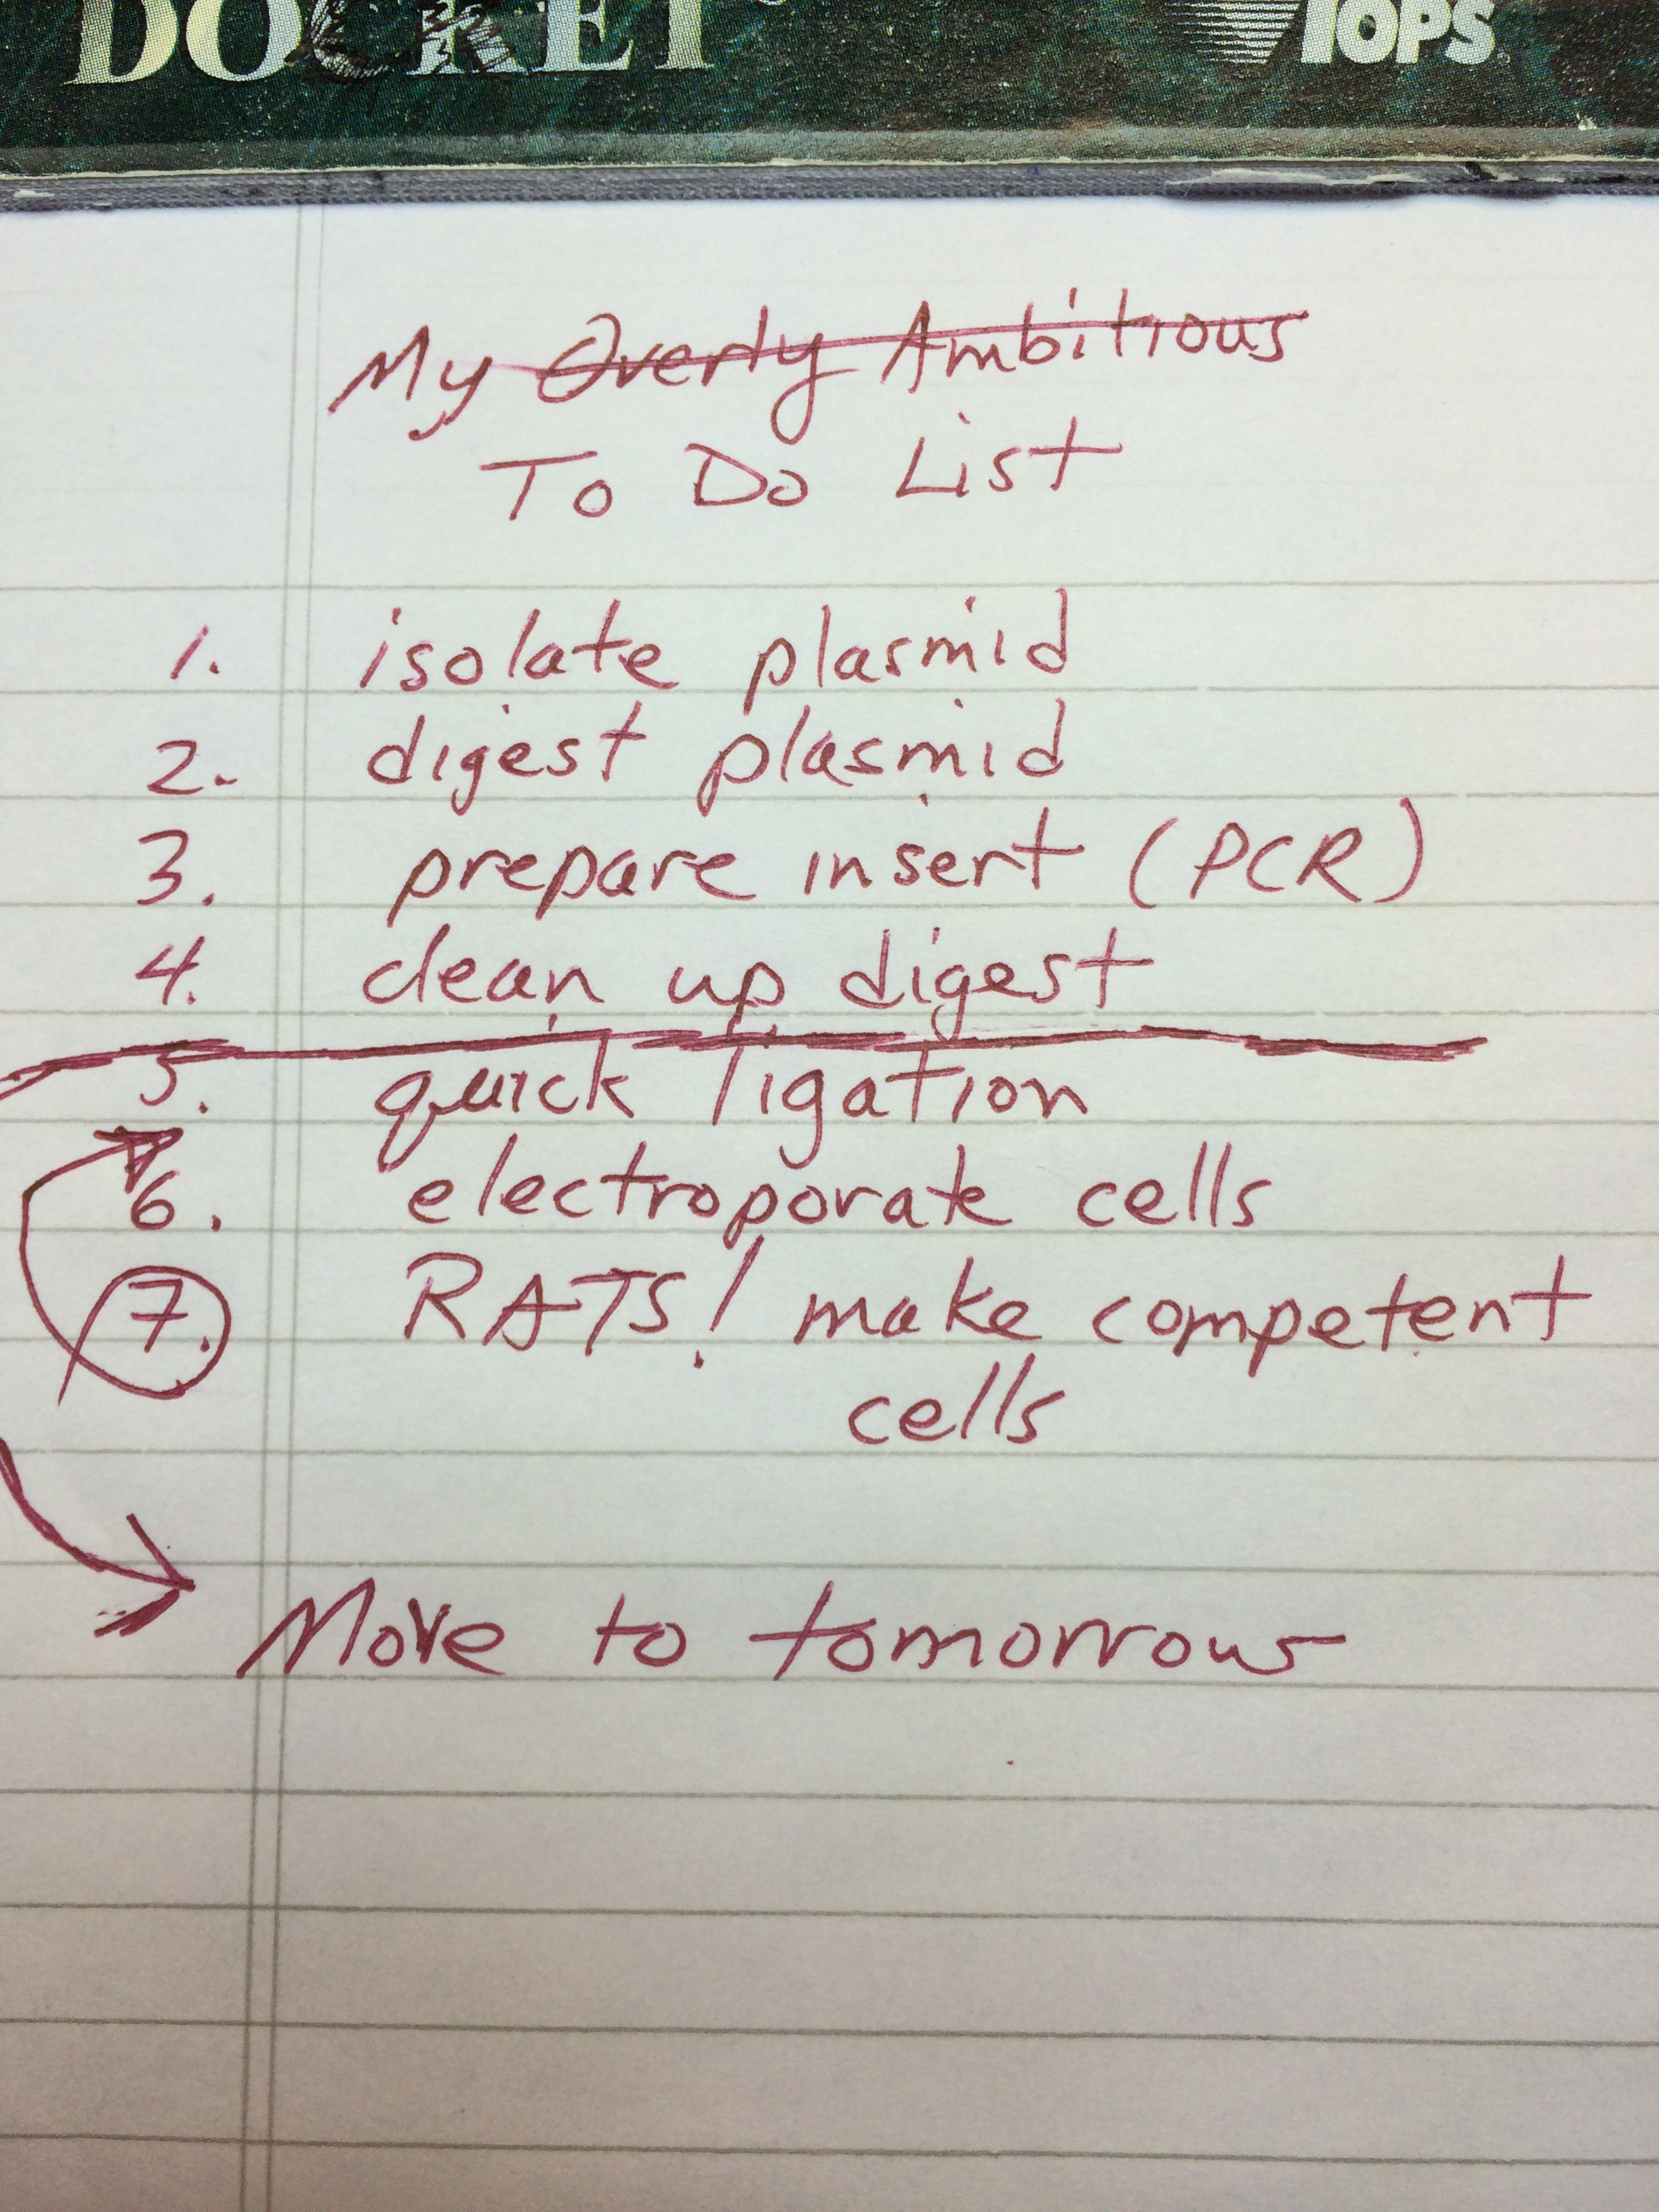 DOCKET
TOPS
My Overly Ambitious
To Do List
1. isolate plasmid
2. digest plasmid
3. prepare insert (PCR)
4. clean up digest
5. quick ligation
6. electroporate cells
7. RATS! make competent
cells
Move to tomorrow